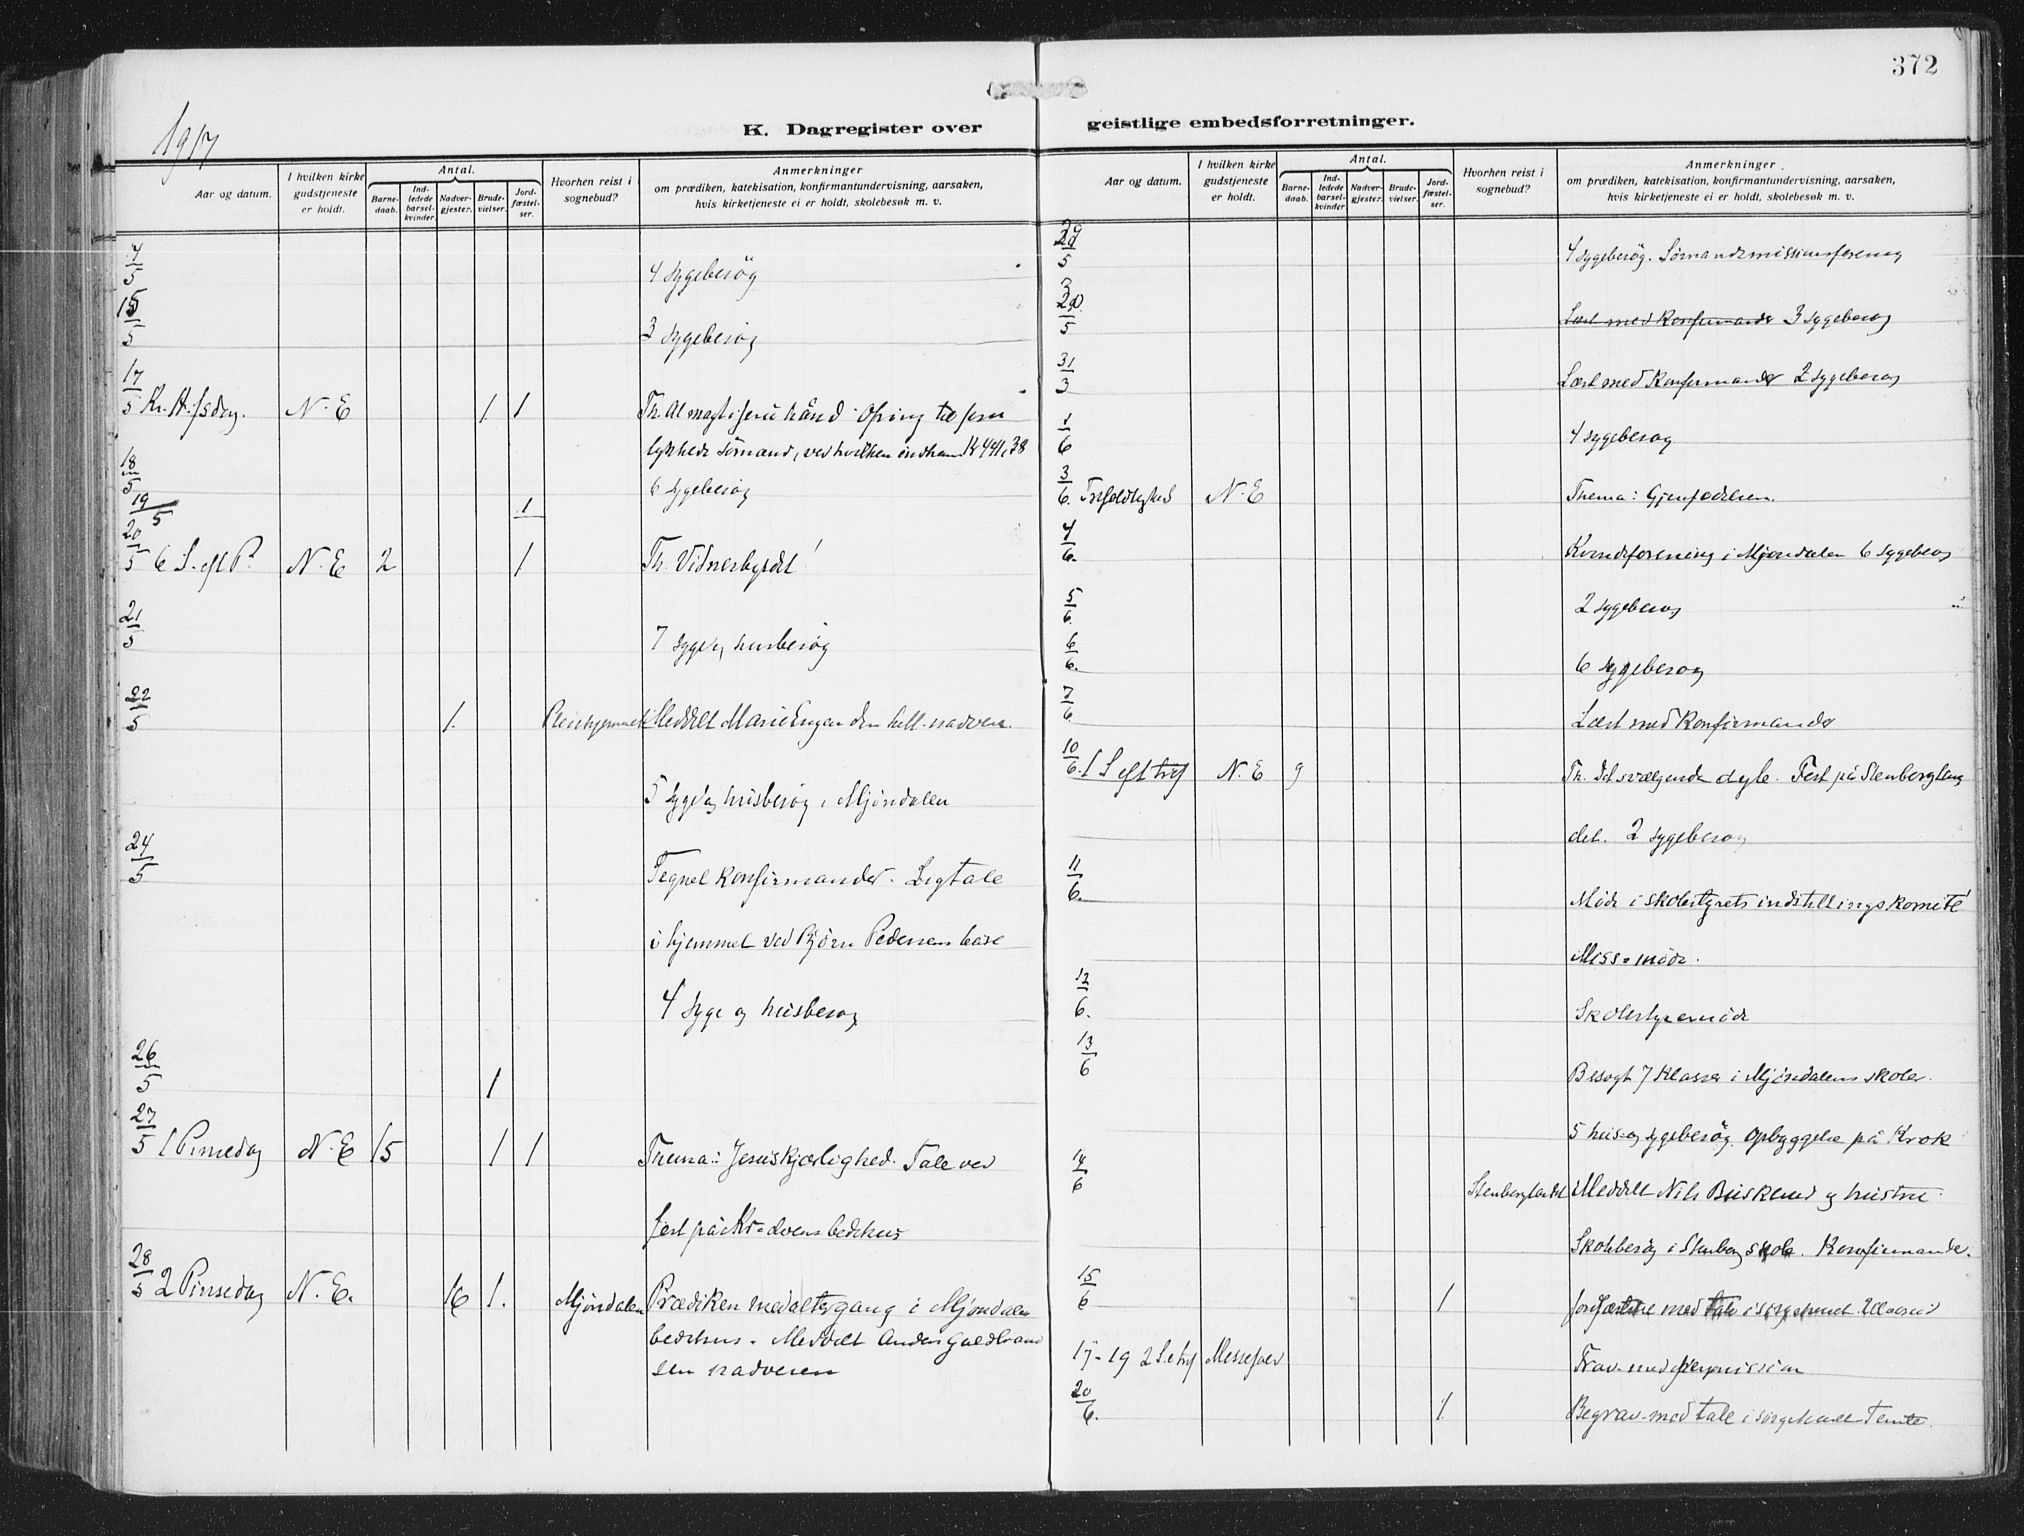 372
1917
K. Dagregister over geistlige embedsforretninger.
Aar og datum.
I hvilken kirke gudstjeneste er holdt.
Antal.
Barnedaab.
Indledede barselkvinder.
Nadvergjester.
Brudevielser.
Jordfæstelser.
Hvorhen reist i sognebud?
Anmerkninger
om prædiken, katekisation, konfirmantundervisning, aarsaken,
hvis kirketjeneste ei er holdt, skolebesøk m. v.
4/5 4 sygebesøg
15/5 3 sygebesøg
17/5 Kr. H. fsdag. N. E 1 1 Th. Almagt i Jesu hånd
sømand, ved hvilken
18/5 6 sygebesøg
19/5 1
20/5 6 S. eft P. N. E 2 1 Th. Vidnesbyrdet!
21/5 7 syge og husbesøg
22/5 1. Pleiehjemmet Meddelt Marie Engen den hell. nadvere.
5 syge og husbesøg i Mjøndalen
24/5 Tegnet konfirmander. Ligtale
i hjemmet ved Bjørn Pedersens båre
4 syge og husbesøg
26/5 1
27/5 1 Pinsedag N. E 15 1 1 Thema: Jesus kjærlighed. Tale ved
fest på bedehus
28/5 2 Pinsedag N. E. 16 1. Mjøndalen Prædiken med altergang i Mjøndalen
bedehus. Meddelt Anders Guldbrand
sen nadveren
Aar og datum.
I hvilken kirke gudstjeneste er holdt.
Antal.
Barnedaab.
Indledede barselkvinder.
Nadvergjester.
Brudevielser.
Jordfæstelser.
Hvorhen reist i sognebud?
Anmerkninger
om prædiken, katekisation, konfirmantundervisning, aarsaken,
hvis kirketjeneste ei er holdt, skolebesøk m. v.
29/5 4 sygebesøg. Sømandsmissionsforening
30/5 Læst med konfirmander 3 sygebesøg
31/3 Læst med konfirmander 2 sygebesøg
1/6 4 sygebesøg
3/6. Trefoldighed N. E Thema: Gjenfødelsen.
4/6. Kvindeforening i Mjøndalen 6 sygebesøg
5/6. 2 sygebesøg
6/6. 6 sygebesøg
7/6 Læst med konfirmander
10/6. 1 S eft tref N. E 9 Th. Det svælgende dyb. Fest på Stenberglan
det. 2 sygebesøg
11/6. Møde i skolestyrets indstillingskomité
Miss-møde.
12/6. Skolestyremøde
13/6 Besøgt 7 klasser i Mjøndalens skoler.
5 hus og sygebesøg. Opbyggelse på Krok
14/6 Stenberglandet Meddelt Nils Buskerud og hustru.
Skolebesøg i Stenberg skole. Konfirmander.
15/6 1 med tale i sørgehuset
17-19 2 S. e tref Messefald Frav. med permission
20/6. 1. Begrav. med tale i sørgehuset